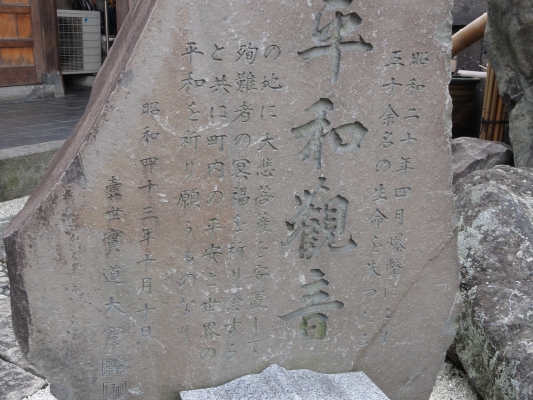 昭和二十年四月爆撃により
五十余名の生命を失つたこ
平和観音
の地に大悲菩薩を安置して
殉難者の冥福を祈りますら
と共に町内の平安と世界の
平和を祈り願うものなり
昭和四十三年十月十日